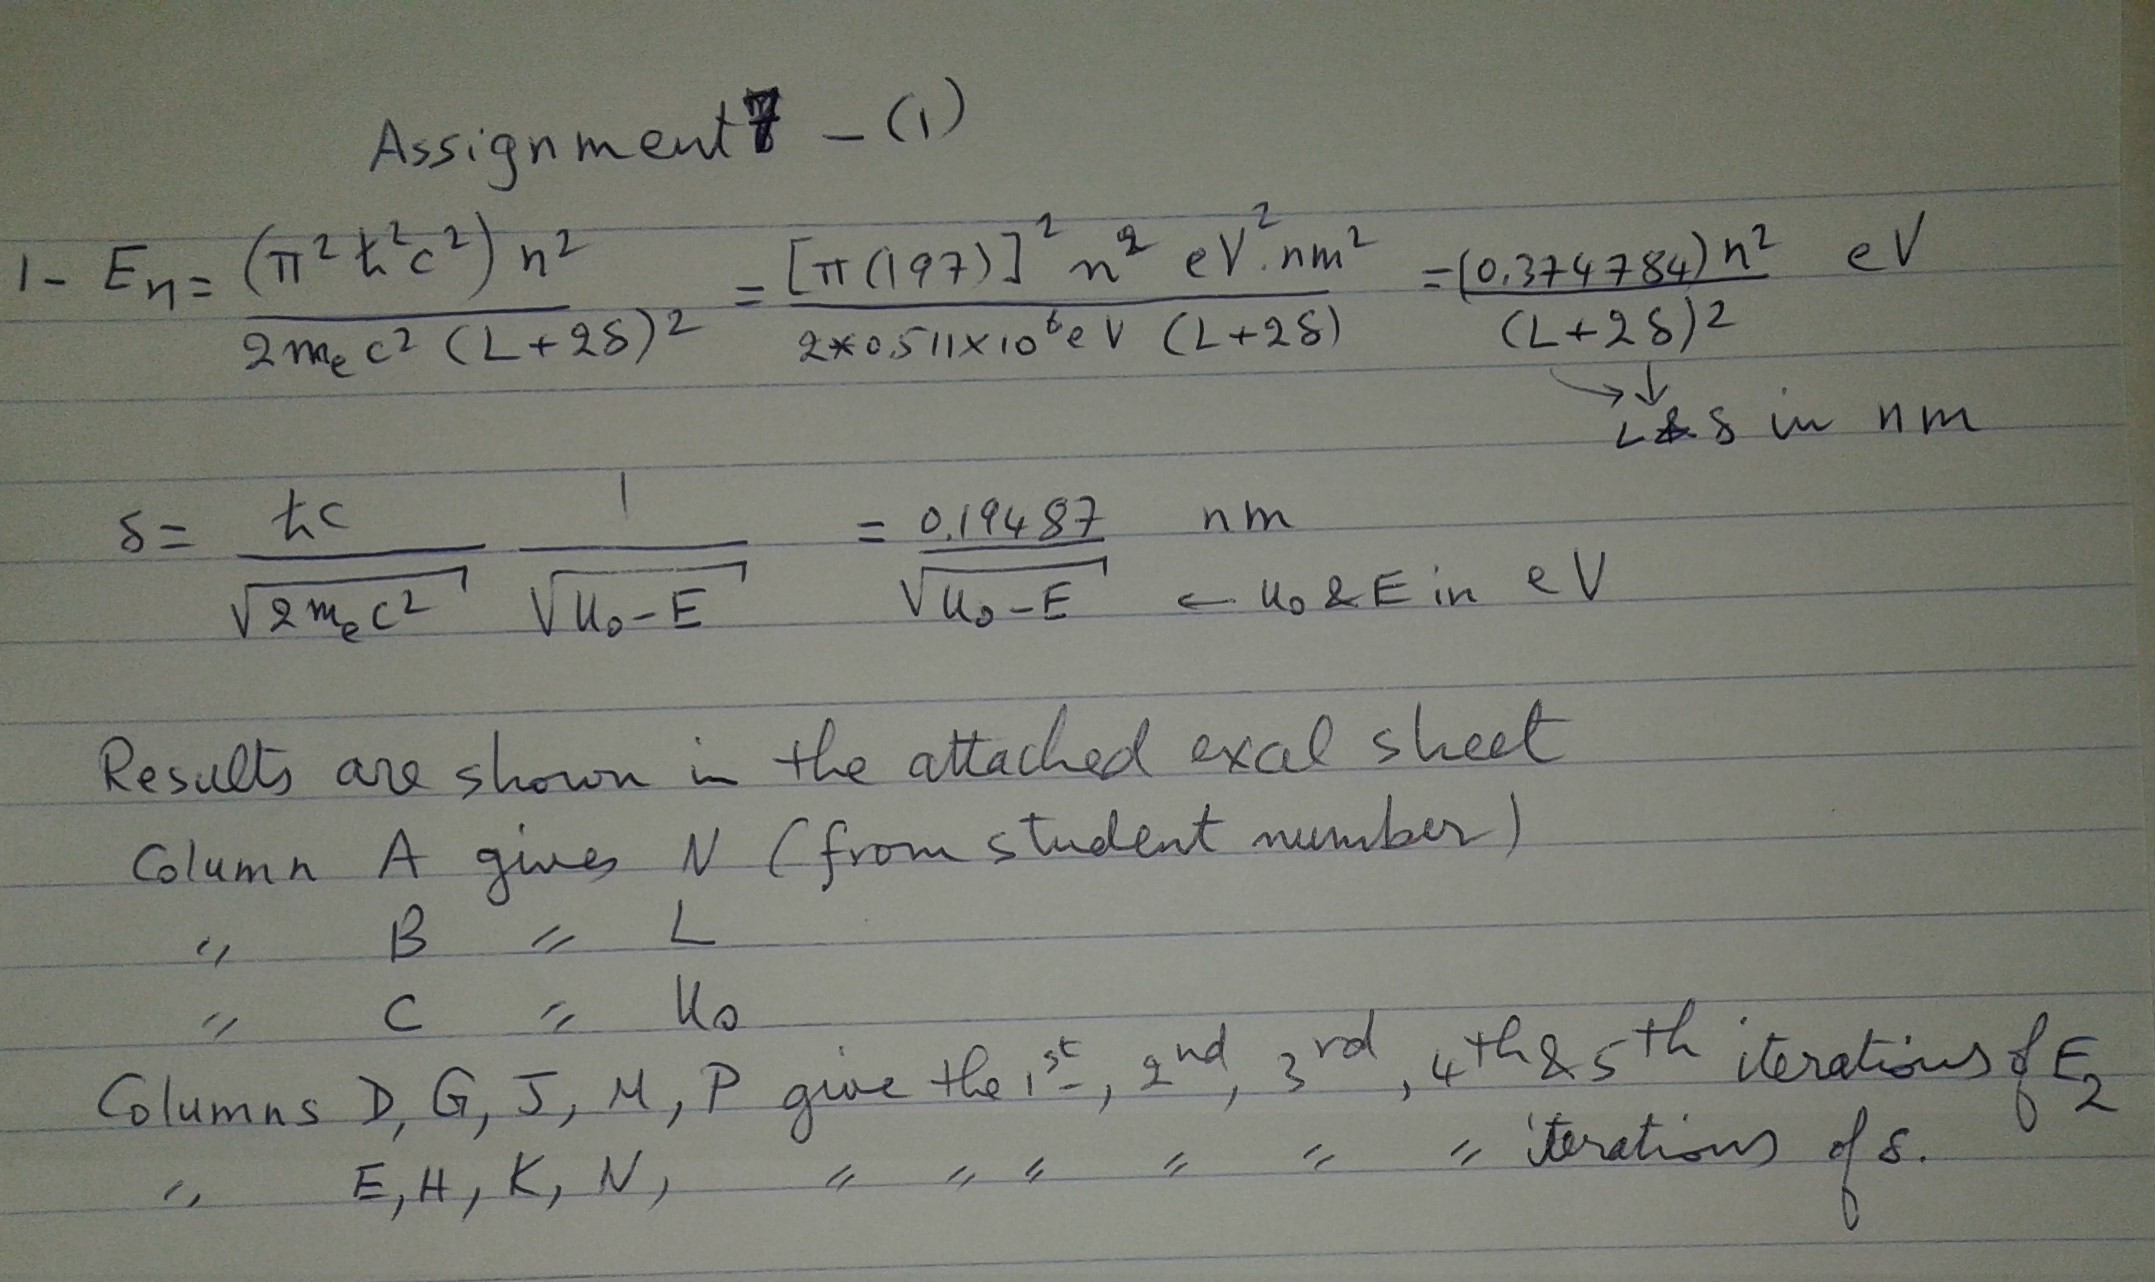 Assignment 7 - (1)
1- En = (π²ħ²c²) n² / 2mec² (L+2δ)² = [π(197)]² n² eV².nm² / 2*0.511×10⁶eV (L+2δ) = (0.374784) n² / (L+2δ)² eV
L & δ in nm
δ = ħc / √2mec² 1 / √U₀-E = 0.19487 / √U₀-E nm ← U₀ & E in eV
Results are shown in the attached excel sheet
Column A gives N (from student number)
〃 B 〃 L
〃 C 〃 U₀
Columns D, G, J, M, P give the 1st, 2nd, 3rd, 4th & 5th iterations of E₂
〃 E, H, K, N, 〃 〃 〃 〃 〃 〃 iterations of δ.